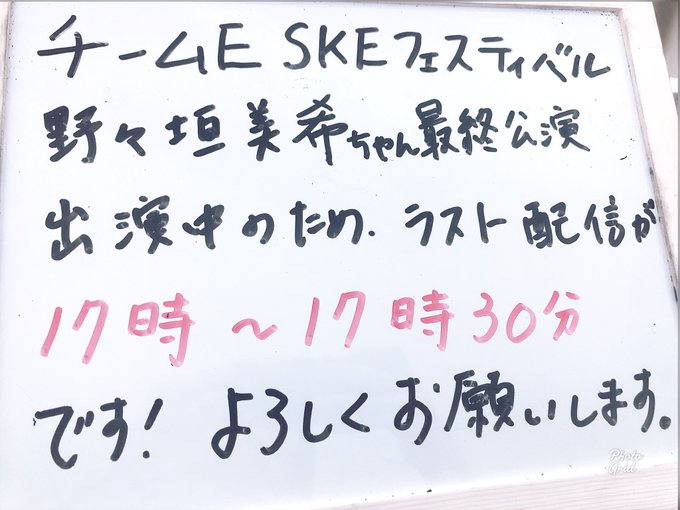 チームE SKEフェスティバル
野々垣美希ちゃん最終公演
出演中のため、ラスト配信が
17時〜17時30分
です！よろしくお願いします。
Photo Grid